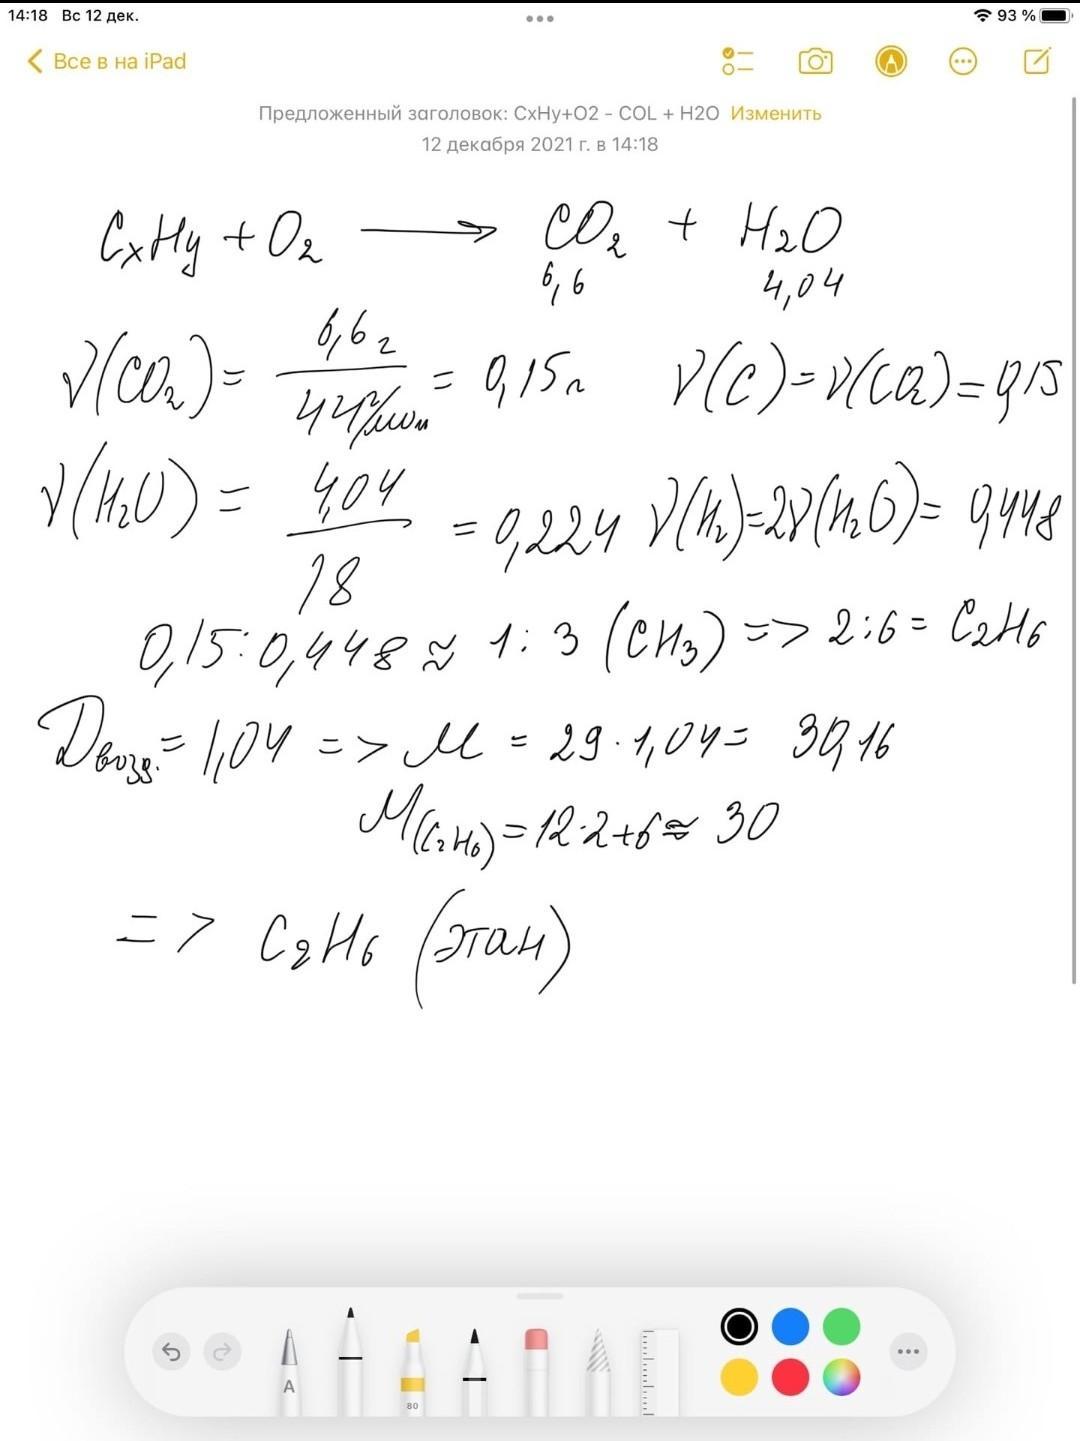 14:18 Вс 12 дек. 93 %
Все в на iPad
Предложенный заголовок: CxHy+O2 - COL + H2O Изменить
12 декабря 2021 г. в 14:18
CxHy + O₂ ⟶ CO₂ + H₂O
6,6 4,04
ν(CO₂) = 6,6г / 44г/мол = 0,15л ν(C) = ν(CO₂) = 0,15
ν(H₂O) = 4,04 / 18 = 0,224 ν(H₂) = 2ν(H₂O) = 0,448
0,15 : 0,448 ≈ 1 : 3 (CH₃) => 2 : 6 = C₂H₆
Dвозд. = 1,04 => M = 29 · 1,04 = 30,16
M(C₂H₆) = 12·2+6 ≈ 30
=> C₂H₆ (этан)
A
80